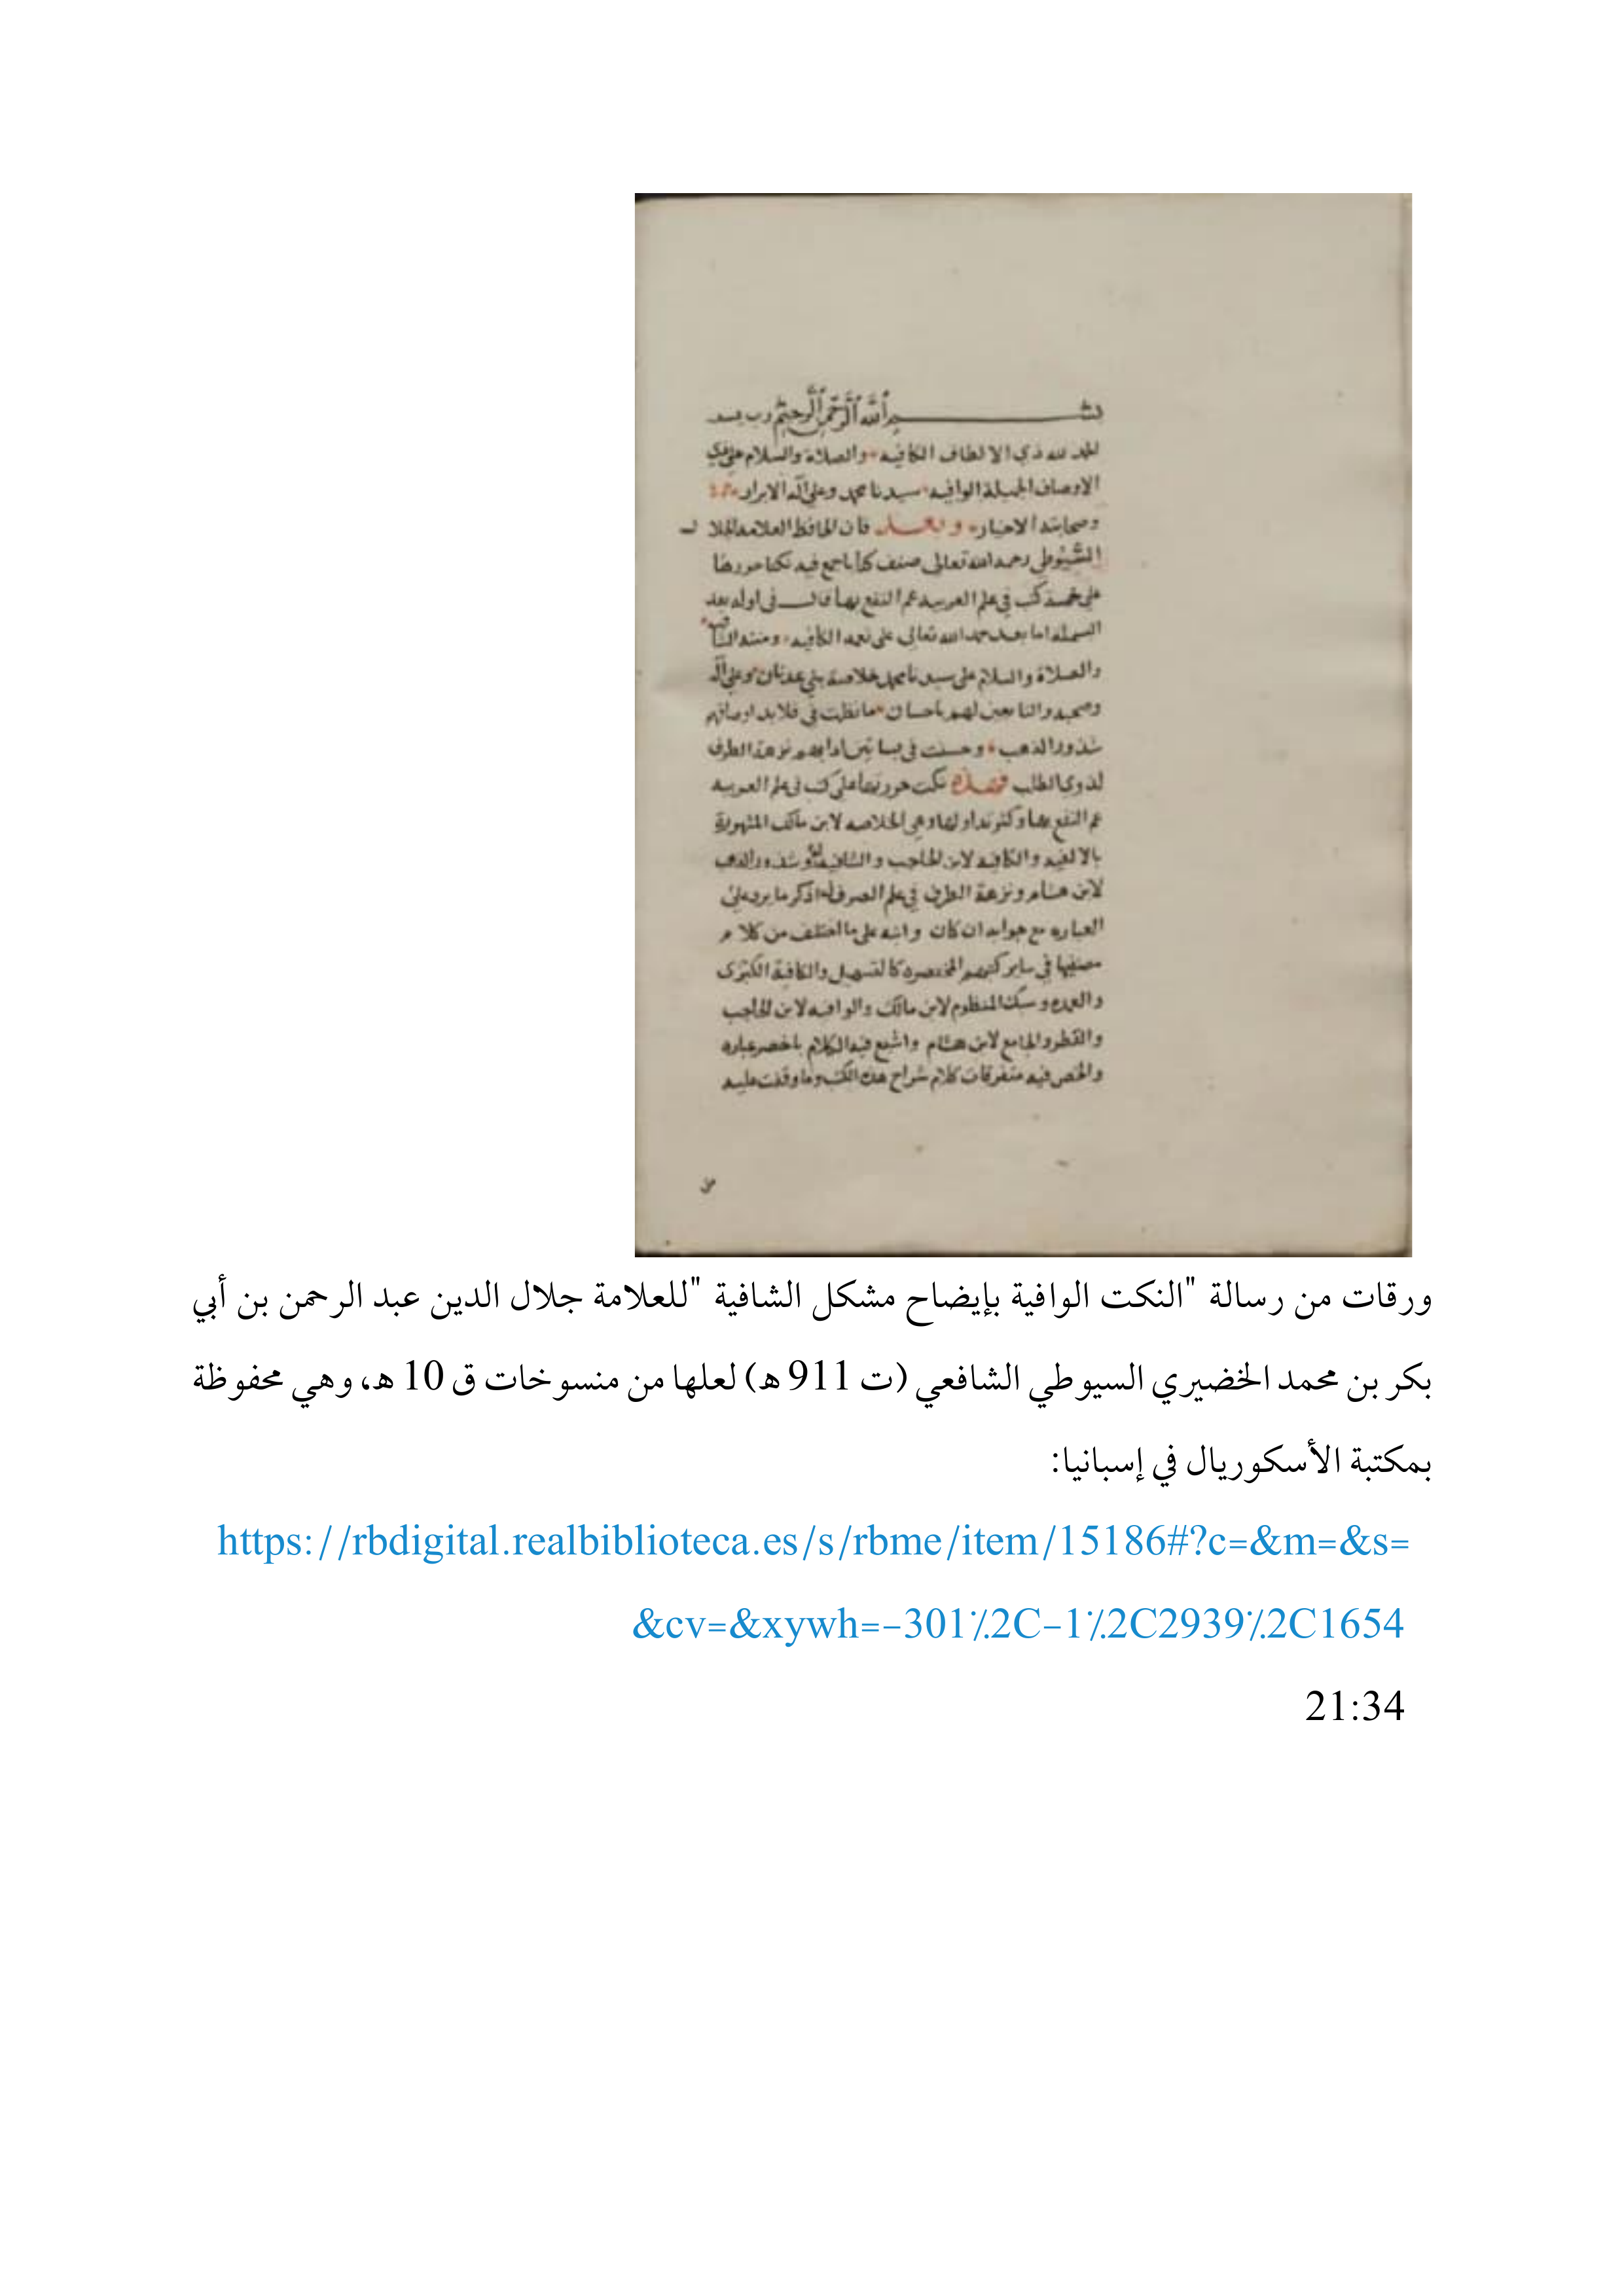 بسم الله الرحمن الرحيم رب يسر
الحمد لله ذي الالطاف الكافيه والصلاة والسلام على ذي
الاوصاف الجميلة الوافيه سيدنا محمد وعلى آله الابرار
وصحابته الاخيار وبعد فان الحافظ العلامة الجلال
السيوطي رحمه الله تعالى صنف كتابا جمع فيه نكتا حررها
على خمسة كتب في علم العربيه عم النفع بها قال في اوله بعد
البسملة اما بعد حمد الله تعالى على نعمه الكافيه ومننه
والصلاة والسلام على سيدنا محمد خلاصة بني عدنان وعلى آله
وصحبه والتابعين لهم باحسان ما نظمت في قلايد اوصافهم
شذور الذهب وحسنت في بساتين ادابهم نزهة الطرف
لذوي الطلب فهذه نكت حررتها على كتب في علم العربيه
عم النفع بها وكثر تداولها وهي الخلاصه لابن مالك المشهورة
بالالفيه والكافيه لابن الحاجب والشافيه له وشذور الذهب
لابن هشام ونزهة الطرف في علم الصرف له اذكر ما يرد على
العباره مع جوابه ان كان وانبه على ما اختلف من كلام
مصنفيها في ساير كتبهم المختصره كالتسهيل والكافية الكبرى
والعمده وسبك المنظوم لابن مالك والوافيه لابن الحاجب
والقطر والجامع لابن هشام واشبع فيه الكلام باخصر عباره
والخص فيه متفرقات كلام شراح هذه الكتب وما وقفت عليه
من
ورقات من رسالة "النكت الوافية بإيضاح مشكل الشافية "للعلامة جلال الدين عبد الرحمن بن أبي
بكر بن محمد الخضيري السيوطي الشافعي (ت 911 ه) لعلها من منسوخات ق 10 ه، وهي محفوظة
بمكتبة الأسكوريال في إسبانيا:
https://rbdigital.realbiblioteca.es/s/rbme/item/15186#?c=&m=&s=
&cv=&xywh=-301%2C-1%2C2939%2C1654
21:34